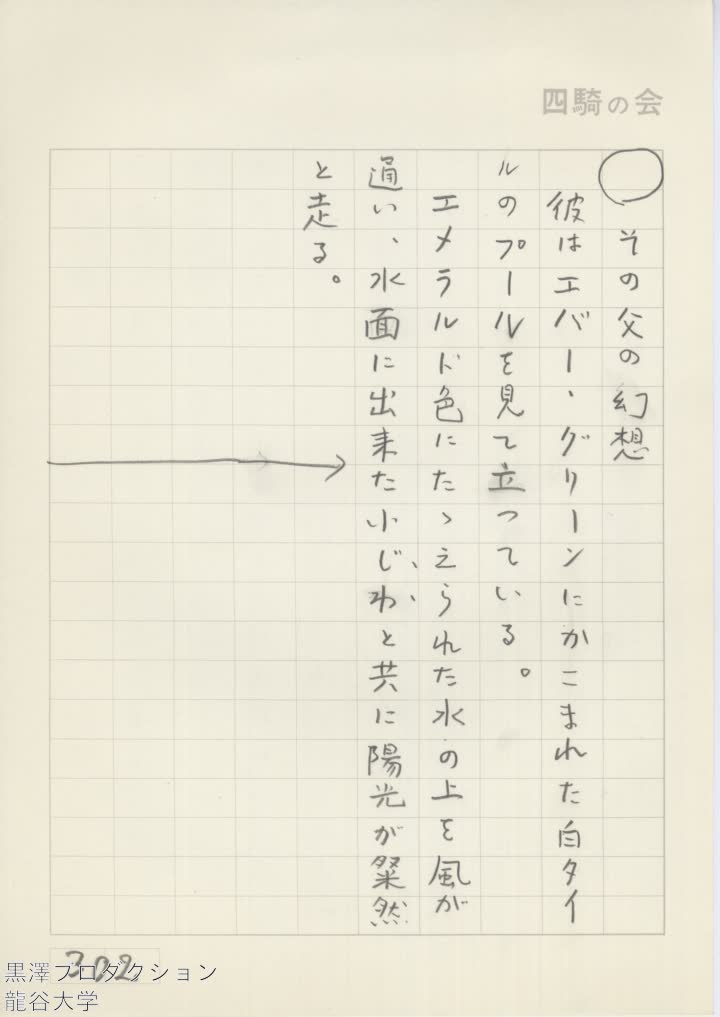 四騎の会
○ その父の幻想
彼はエバー・グリーンにかこまれた白タイ
ルのプールを見て立っている。
エメラルド色にたゝえられた水の上を風が
通い、水面に出来た小じわと共に陽光が燦然
と走る。
302
黒澤プロダクション
龍谷大学